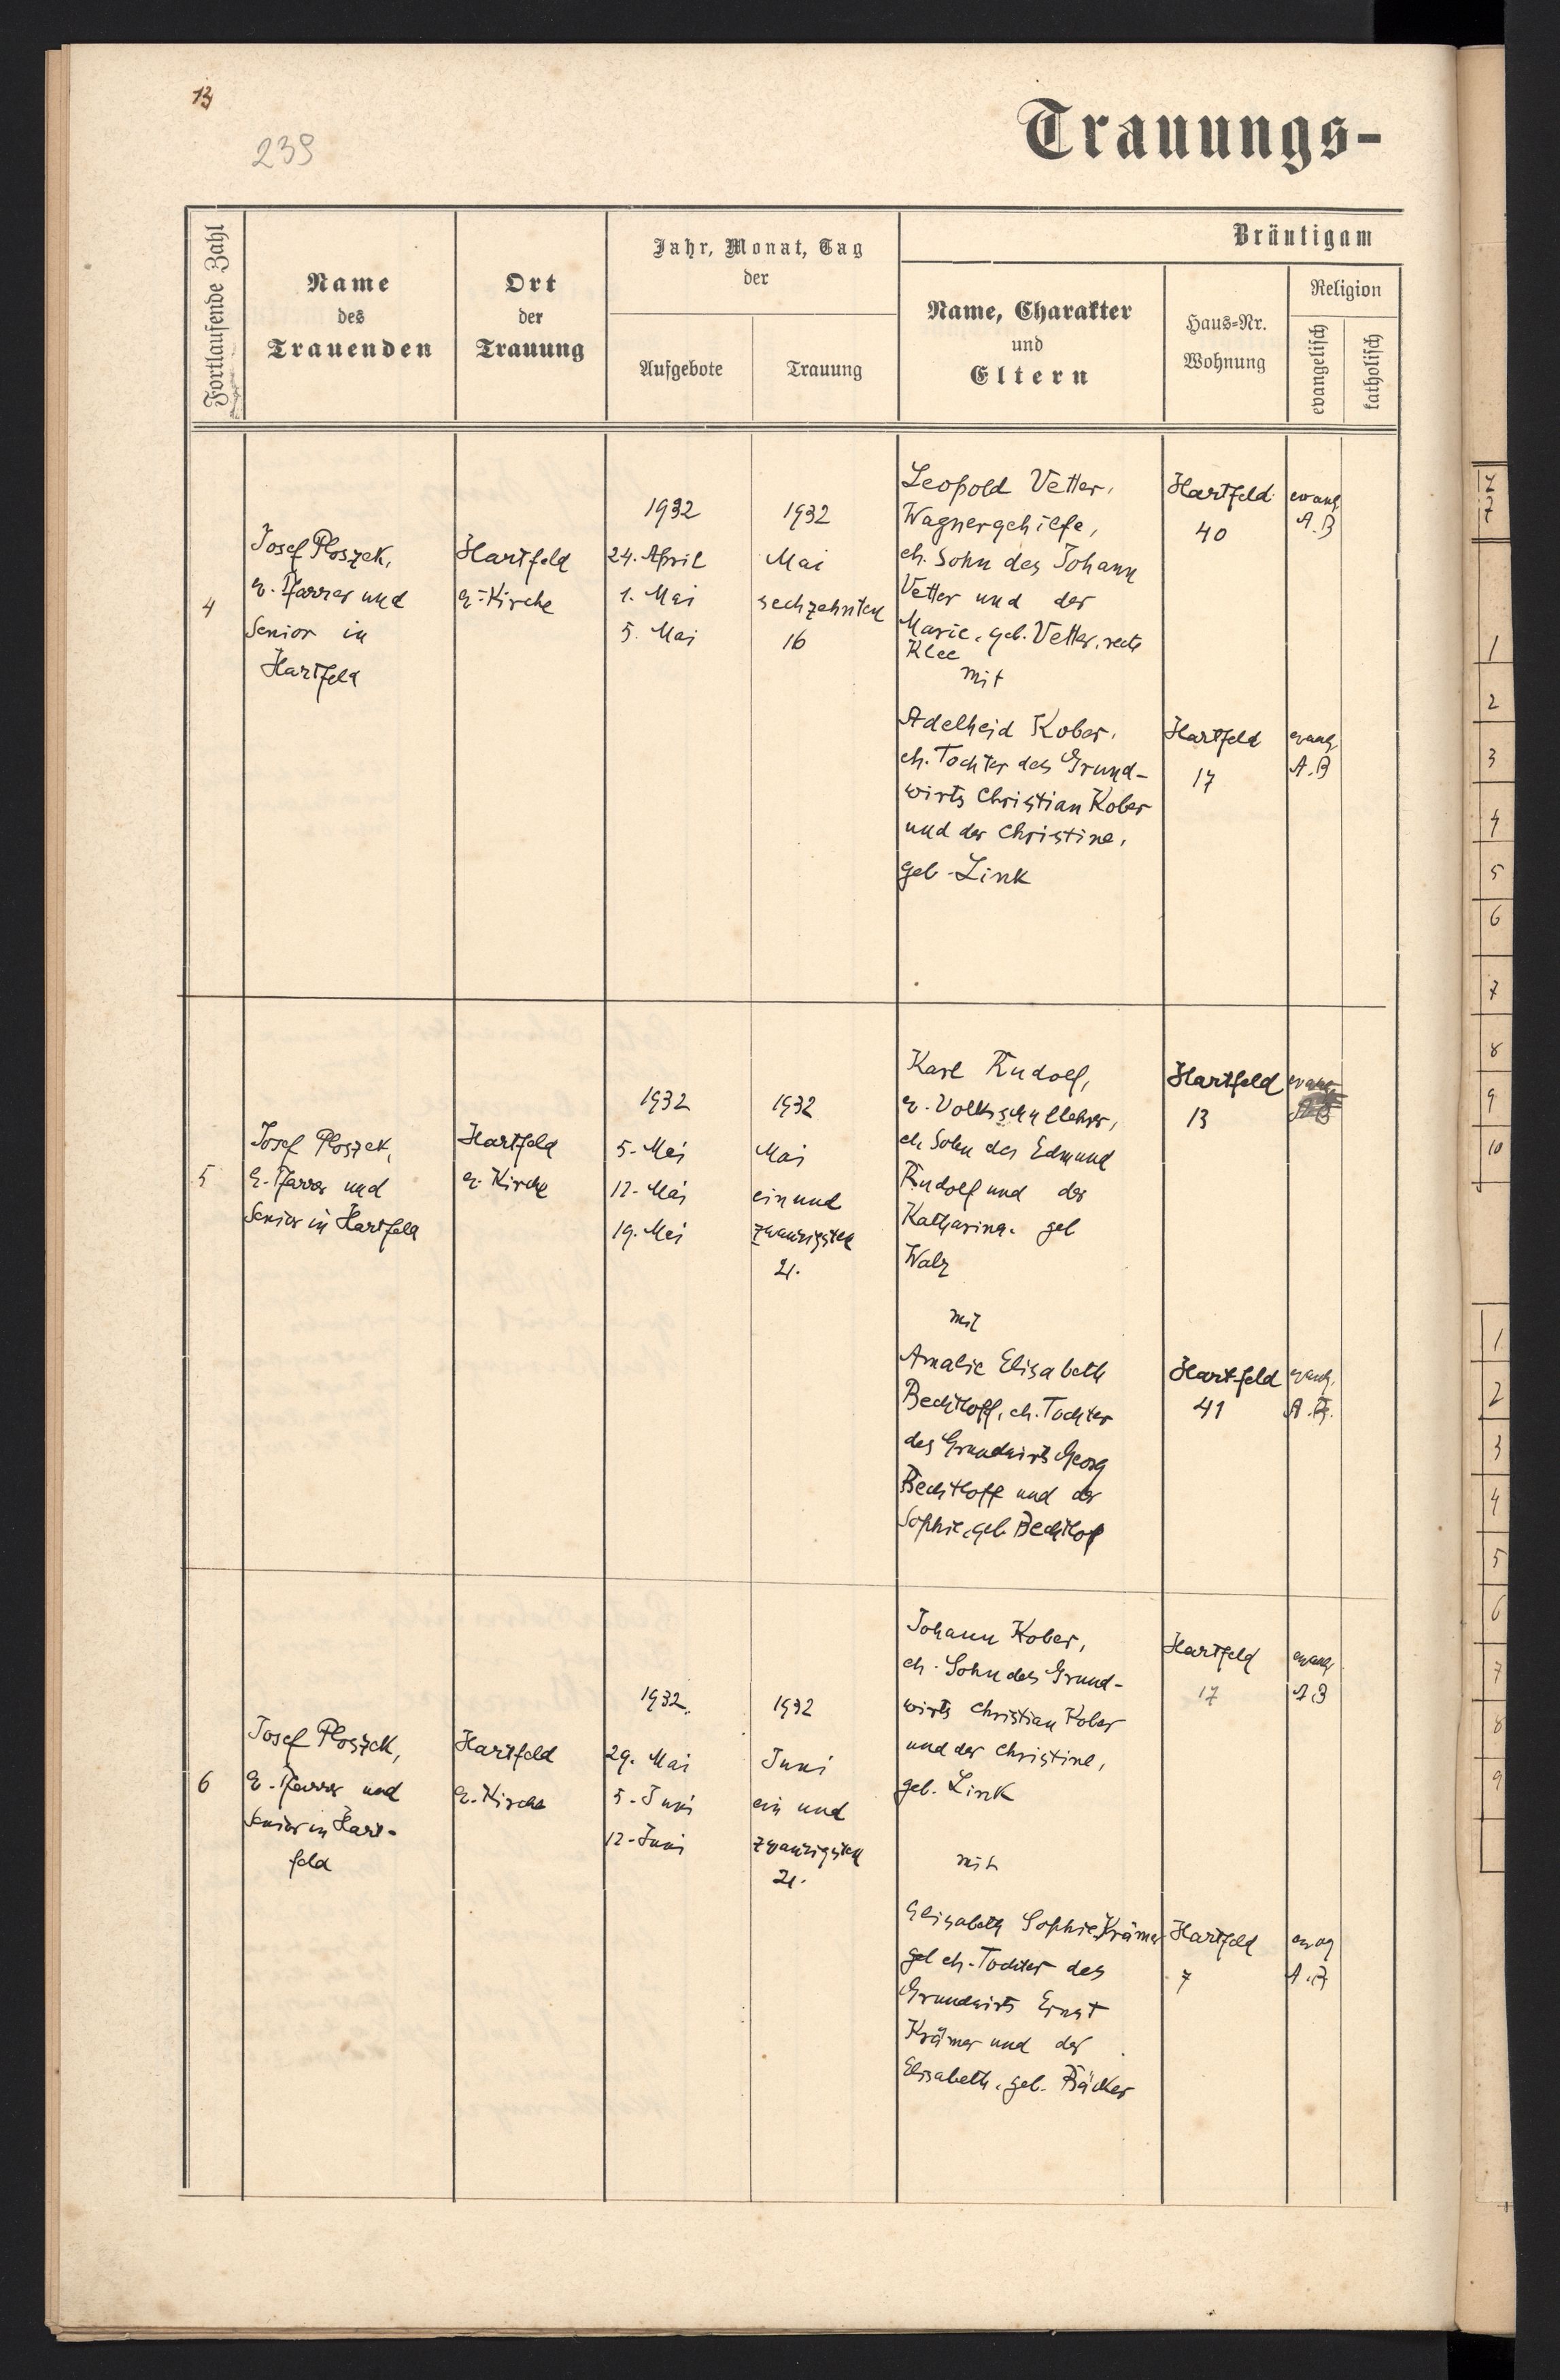 13
239
Trauungs-
Fortlaufende Zahl
Name
des
Trauenden
Ort
der
Trauung
Jahr, Monat, Tag
der
Aufgebote
Trauung
Bräutigam
Name, Charakter
und
Eltern
Haus-Nr.
Wohnung
Religion
evangelisch
katholisch
4
Josef Ploszek,
e. Pfarrer und
Senior in
Hartfeld
Hartfeld
e. Kirche
1932
24. April
1. Mai
5. Mai
1932
Mai
sechzehnten
16
Leopold Vetter,
Wagnergehilfe,
eh. Sohn des Johann
Vetter und der
Marie, geb. Vetter, recte
Klee
mit
Adelheid Kober,
eh. Tochter des Grund-
wirts Christian Kober
und der Christine,
geb. Link
Hartfeld
40
evang
A.B
Hartfeld
17
evang
A.B
5
Josef Ploszek,
e. Pfarrer und
Senior in Hartfeld
Hartfeld
e. Kirche
1932
5. Mai
12. Mai
19. Mai
1932
Mai
ein und
zwanzigsten
21.
Karl Rudolf,
e. Volksschullehrer,
eh Sohn des Edmund
Rudolf und der
Katharina. geb
Walz
mit
Amalie Elisabeth
Bechtloff, eh. Tochter
des Grundwirts Georg
Bechtloff und der
Sophie, geb. Bechtlof
Hartfeld
13
evang
Hartfeld
41
evang.
A.B.
6
Josef Ploszek,
e. Pfarrer und
Senior in Hart-
feld
Hartfeld
e. Kirche
1932.
29. Mai
5. Juni
12. Juni
1932
Juni
ein und
zwanzigsten
21.
Johann Kober,
eh. Sohn des Grund-
wirts Christian Kober
und der Christine,
geb. Link
mit
Elisabeth Sophie Krämer
geb eh. Tochter des
Grundwirts Ernst
Krämer und der
Elisabeth, geb. Bäcker
Hartfeld
17
evang
A.B
Hartfeld
7
evag
A.B
1
2
3
4
5
6
7
8
9
10
1
2
3
4
5
6
7
8
9